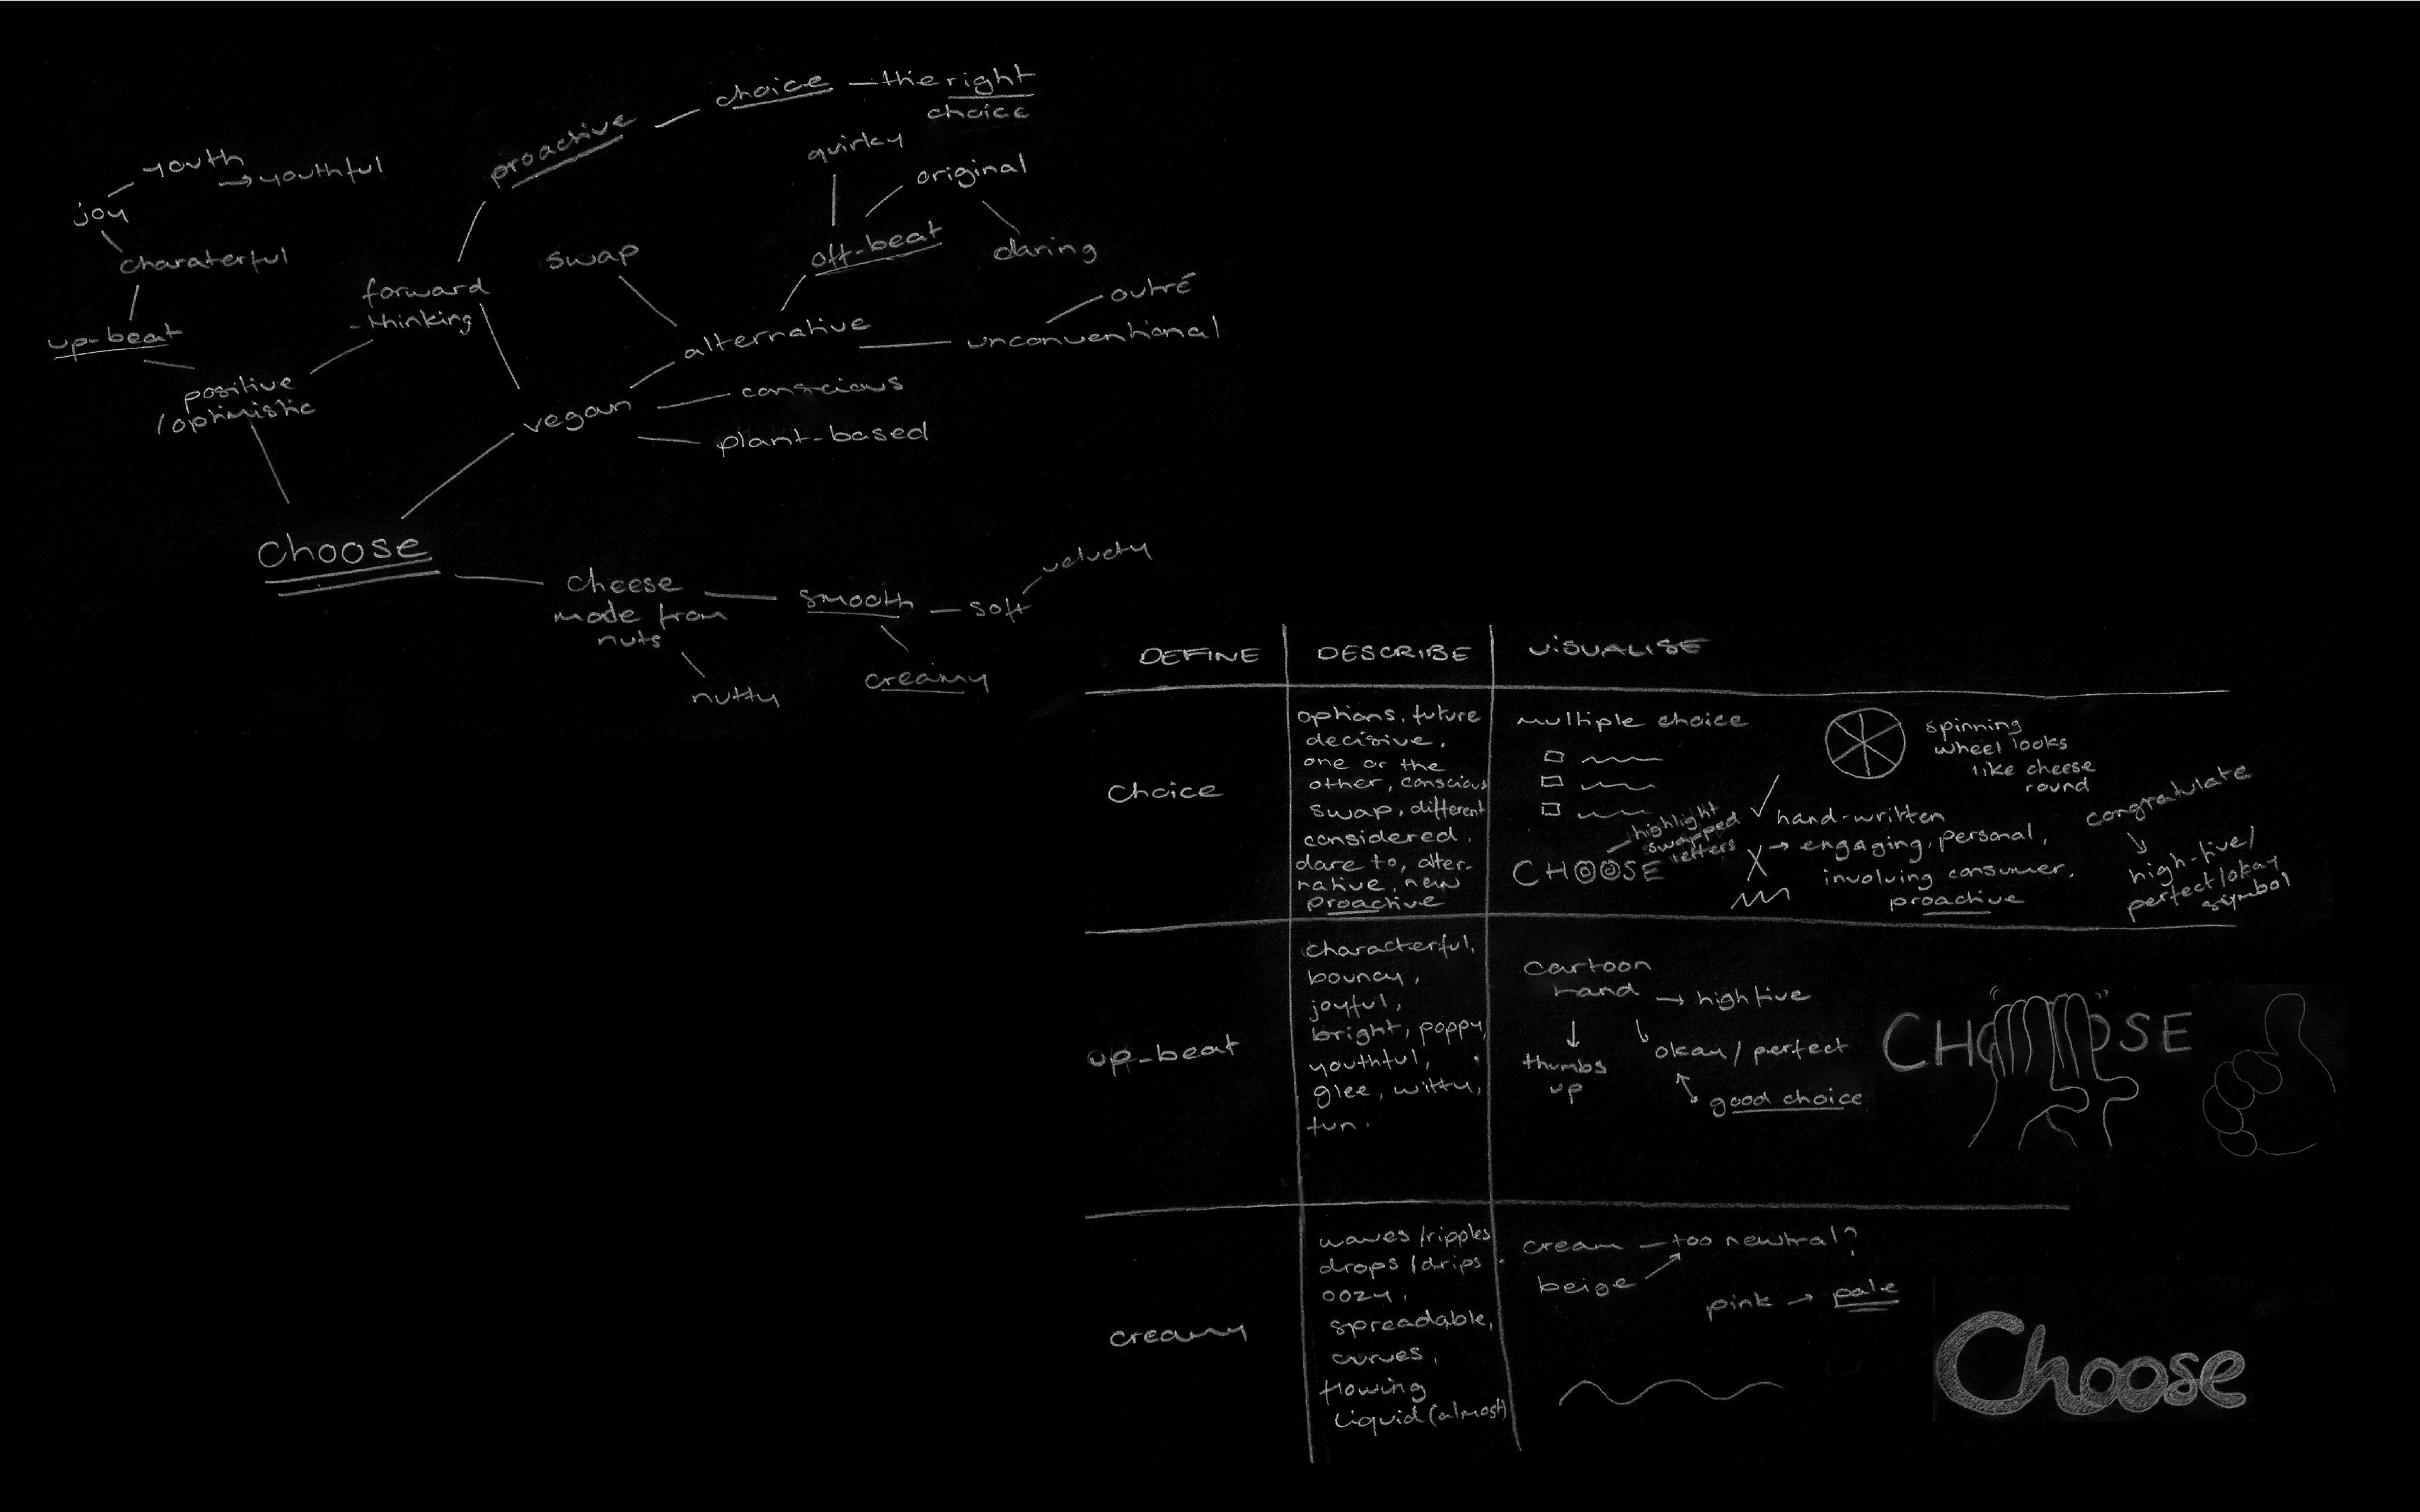 choice — the right
choice
proactive
quirky
youth
→ youthful
original
joy
off-beat
daring
swap
charaterful
outré
forward
-thinking
alternative
unconventional
up-beat
positive
/optimistic
conscious
vegan
plant-based
choose
cheese
made from
nuts
smooth
soft
velvety
creamy
nutty
DEFINE
DESCRIBE
VISUALISE
choice
options, future
decisive,
one or the
other, conscious
swap, different
considered,
dare to, alter-
native, new
proactive
multiple choice
spinning
wheel looks
like cheese
round
highlight
swapped
letters
CHOOSE
hand-written
→ engaging, personal,
involving consumer,
proactive
congratulate
high-five/
perfect/okay
symbol
up-beat
characterful,
bouncy,
joyful,
bright, poppy,
youthful,
glee, witty,
fun.
cartoon
hand → high five
thumbs
up
okay / perfect
good choice
CHOOSE
creamy
waves /ripples
drops /drips
oozy,
spreadable,
curves,
flowing
liquid (almost)
cream — too newtral?
beige
pink → pale
Choose